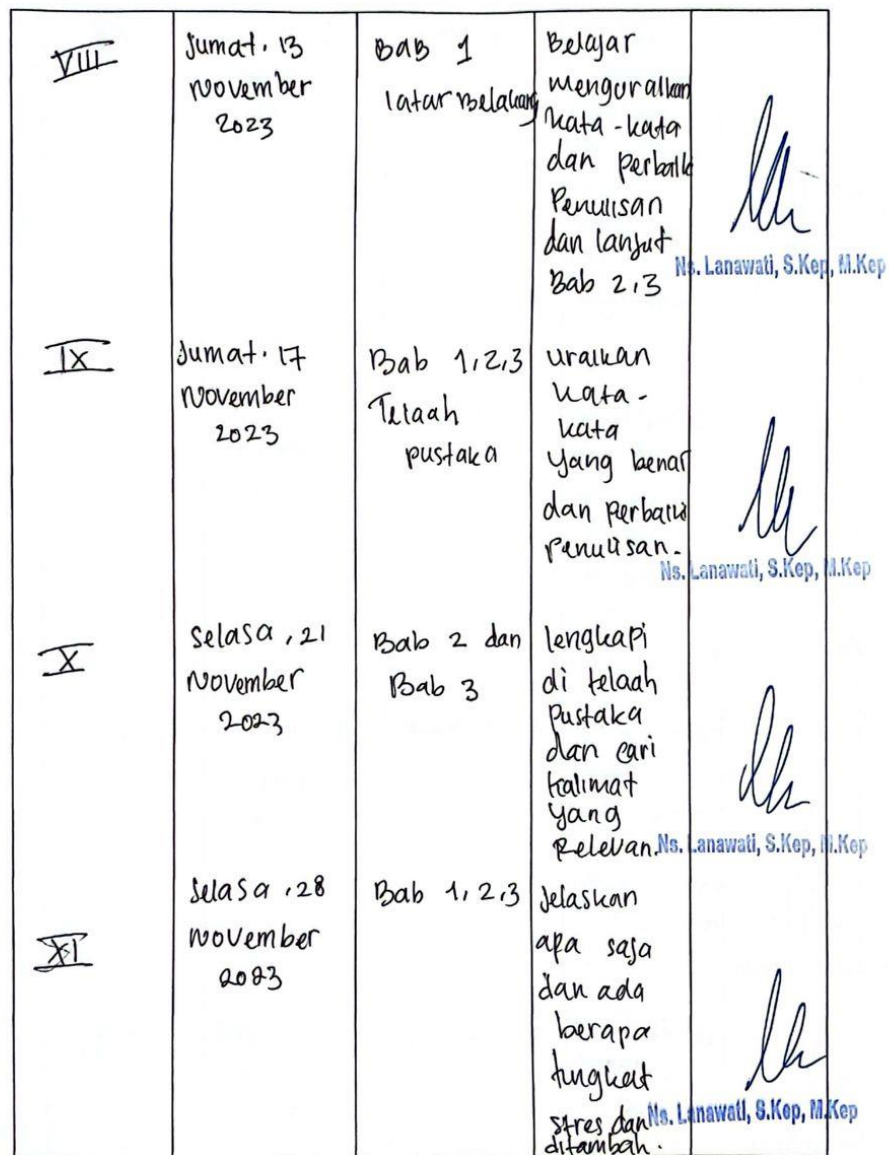 VIII
Jumat. 13
November
2023
Bab 1
latar Belakang
Belajar
menguraikan
kata-kata
dan perbaiki
Penulisan
dan lanjut
Bab 2,3
Ns. Lanawati, S.Kep, M.Kep
IX
Jumat. 17
November
2023
Bab 1,2,3
Telaah
pustaka
uraikan
kata-
kata
yang benar
dan perbaiki
penulisan.
Ns. Lanawati, S.Kep, M.Kep
X
Selasa, 21
November
2023
Bab 2 dan
Bab 3
lengkapi
di telaah
Pustaka
dan cari
kalimat
yang
Relevan.
Ns. Lanawati, S.Kep, M.Kep
XI
Selasa, 28
November
2023
Bab 1,2,3
Jelaskan
apa saja
dan ada
berapa
tingkat
stres dan
ditambah.
Ns. Lanawati, S.Kep, M.Kep